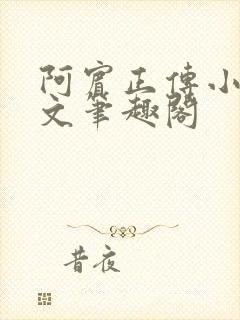 阿賓正傳小
文筆趣閣
昔夜